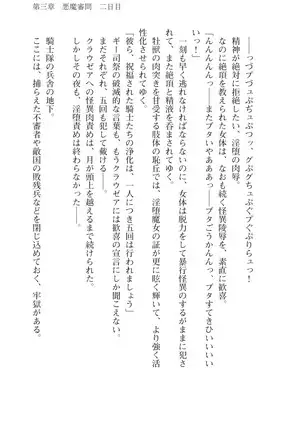 第三章　悪魔審問　二日目
――つづブづュっぷぢュぷつッ。グぷグちゅぷぐプぐぷりらュっ！
精神が絶対に拒絶したい、淫堕の肉辱。
なのに絶頂を教えられた女体は、なおも続く怪異陵辱を、素直に歓喜。
「んんんんんっ――まブタいやあああっ――ブタごうかんんっ、ブタすてきひいいいいいいっ！」
一刻も早く逃れなければならないのに、女体は脱力をして暴行怪異のするがままに犯され続けて、また絶頂と精液を呑まされてゆく。
牡獣の肉突きを甘受する肢体の恥丘では、淫堕魔女の証が更に眩く輝いて、より強く活性化させられてゆく。
「彼ら、祝福された騎士たちの浄化は、一人につき五回は行われましょう」
ギー司祭の破滅的な言葉も、もうクラウゼアには歓喜の宣言にしか聞こえない。
全てのブタに、五回も犯して戴ける――。
クラウゼアへの怪異肉責めは、月が頭上を越えるまで続けられた。
しかしその夜も、淫堕責めは終わらなかった――。
騎士隊の兵舎の地下。
ここには、捕らえた不審者や敵国の敗残兵などを閉じ込めておく、牢獄がある。